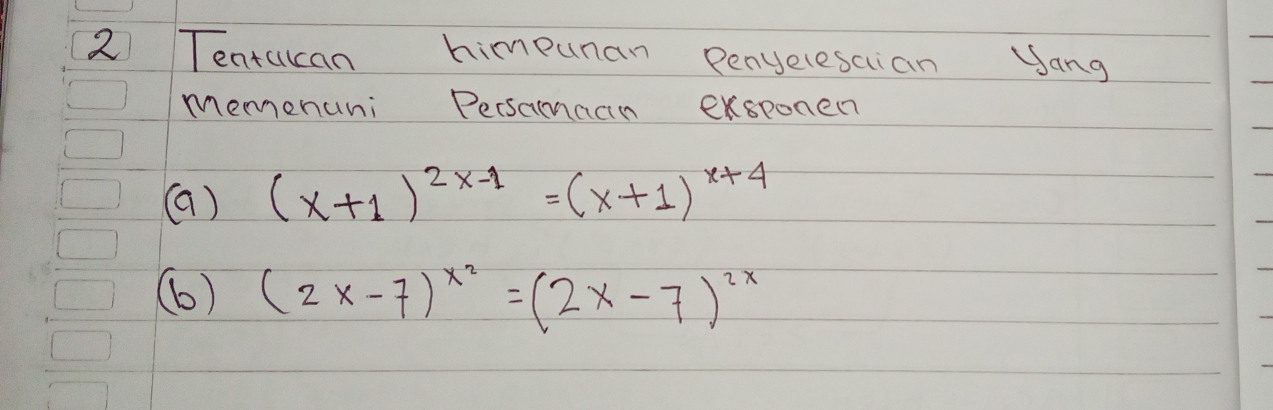 2 Tentukan himpunan Penyelesaian Yang
Memenuhi Persamaan eksponen
(a) (x+1)^2x-1 =(x+1)^x+4
(b) (2x-7)^x² =(2x-7)^2x